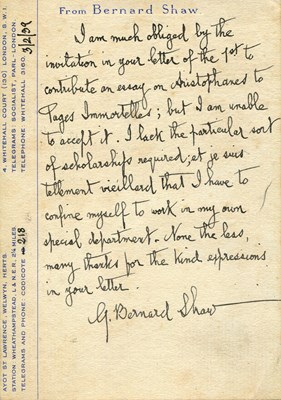 From Bernard Shaw
4, WHITEHALL COURT (130) LONDON, S.W.1.
TELEGRAMS: SOCIALIST, PARL-LONDON
TELEPHONE: WHITEHALL 3160.
3/2/39
AYOT ST LAWRENCE, WELWYN, HERTS.
STATION: WHEATHAMPSTEAD, L.& N.E.R. 2¼ MILES.
TELEGRAMS AND PHONE: CODICOTE 218
I am much obliged by the
invitation in your letter of the 1st to
contribute an essay on Aristophanes to
Pages Immortelles; but I am unable
to accept it. I lack the particular sort
of scholarship required; et je suis
tellement vieillard that I have to
confine myself to work in my own
special department. None the less,
many thanks for the kind expressions
in your letter.
G. Bernard Shaw